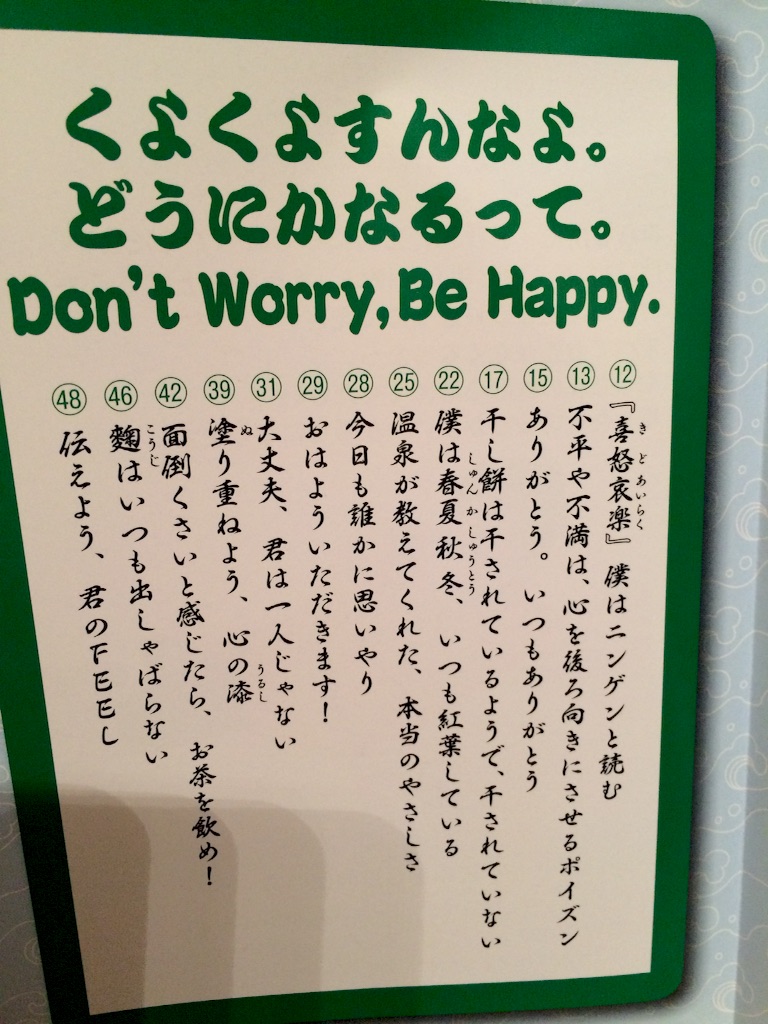 くよくよすんなよ。
どうにかなるって。
Don't Worry, Be Happy.
⑫『喜怒哀楽』僕はニンゲンと読む
きどあいらく
⑬不平や不満は、心を後ろ向きにさせるポイズン
⑮ありがとう。いつもありがとう
⑰干し餅は干されているようで、干されていない
㉒僕は春夏秋冬、いつも紅葉している
しゅんかしゅうとう
㉕温泉が教えてくれた、本当のやさしさ
㉘今日も誰かに思いやり
㉙おはよういただきます！
㉛大丈夫、君は一人じゃない
㊴塗り重ねよう、心の漆
ぬ
うるし
㊷面倒くさいと感じたら、お茶を飲め！
㊻麴はいつも出しゃばらない
こうじ
㊽伝えよう、君のFEEL